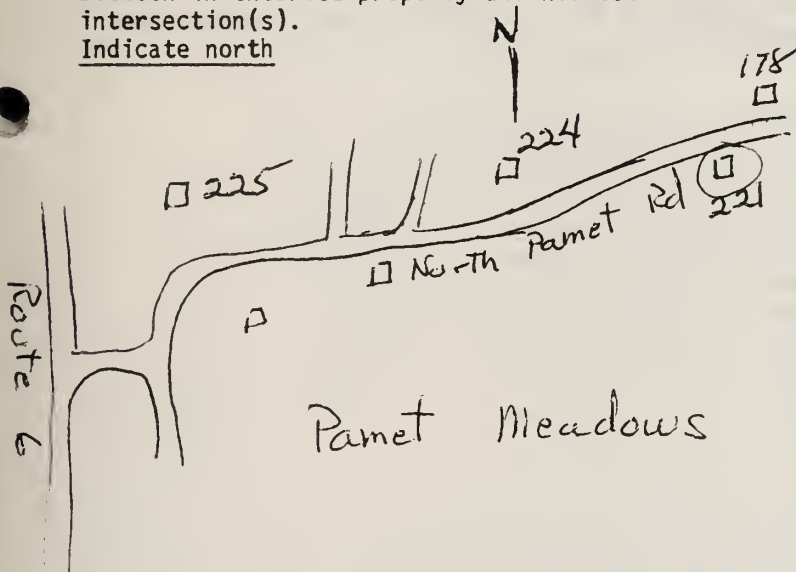 intersection(s).
Indicate north
N
178
224
225
221
North Pamet Rd
Route 6
Pamet Meadows